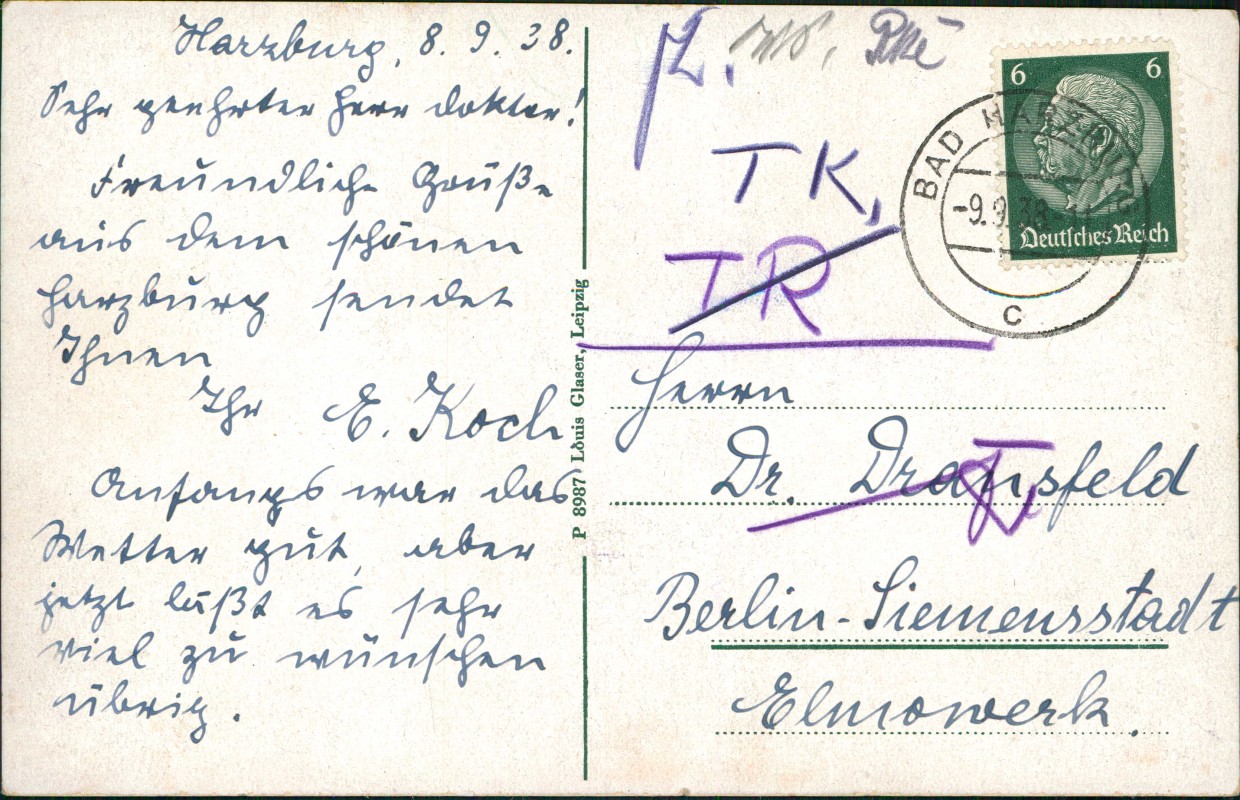 Harzburg, 8. 9. 38.
Sehr geehrter Herr Doktor!
Freundliche Grüße
aus dem schönen
Harzburg sendet
Ihnen
Ihr E. Koch
Anfangs war das
Wetter gut, aber
jetzt läßt es sehr
viel zu wünschen
übrig.
P 8987 Louis Glaser, Leipzig
TK,
TR
6 6
Deutsches Reich
BAD HARZBURG
-9.9.38-11
c
Herrn
Dr. Dransfeld
Berlin-Siemensstadt
Elmowerk.